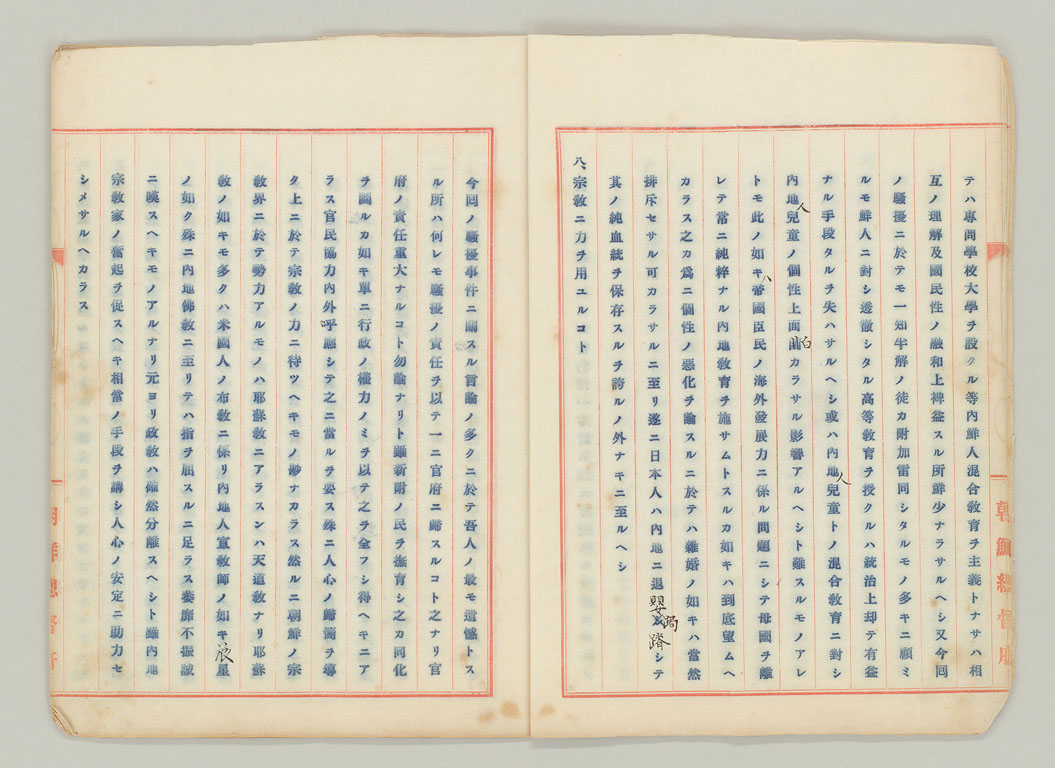 テハ專門學校大學ヲ設クル等內鮮人混合敎育ヲ主義トナサハ相
互ノ理解及國民性ノ融和上裨益スル所鮮少ナラサルヘシ又今囘
ノ騷擾ニ於テモ一知半解ノ徒カ附加雷同シタルモノ多キニ顧ミ
ルモ鮮人ニ對シ透徹シタル高等敎育ヲ授クルハ統治上却テ有益
ナル手段タルヲ失ハサルヘシ或ハ內地人兒童トノ混合敎育ニ對シ
內地人兒童ノ個性上面白カラサル影響アルヘシト難スルモノアレ
トモ此ノ如キハ帝國臣民ノ海外發展力ニ係ル問題ニシテ母國ヲ離
レテ常ニ純粹ナル內地敎育ヲ施サムトスルカ如キハ到底望ムヘ
カラス之カ爲ニ個性ノ惡化ヲ論スルニ於テハ雜婚ノ如キハ當然
排斥セサル可カラサルニ至リ遂ニ日本人ハ內地ニ退嬰跼蹐シテ
其ノ純血統ヲ保存スルヲ誇ルノ外ナキニ至ルヘシ
八、宗敎ニ力ヲ用ユルコト
朝鮮總督府
今囘ノ騷擾事件ニ關スル言論ノ多クニ於テ吾人ノ最モ遺憾トス
ル所ハ何レモ騷擾ノ責任ヲ以テ一ニ官府ニ歸スルコト之ナリ官
府ノ責任重大ナルコト勿論ナリト雖新附ノ民ヲ撫育シ之カ同化
ヲ圖ルカ如キ單ニ行政ノ權力ノミヲ以テ之ヲ全フシ得ヘキニア
ラス官民協力內外呼應シテ之ニ當ルヲ要ス殊ニ人心ノ歸嚮ヲ導
ク上ニ於テ宗敎ノ力ニ待ツヘキモノ尠ナカラス然ルニ朝鮮ノ宗
敎界ニ於テ勢力アルモノハ耶蘇敎ニアラスンハ天道敎ナリ耶蘇
敎ノ如キモ多クハ米國人ノ布敎ニ係リ內地人宣敎師ノ如キ晨星
ノ如ク殊ニ內地佛敎ニ至リテハ指ヲ屈スルニ足ラス萎靡不振誠
ニ嘆スヘキモノアルナリ元ヨリ政敎ハ確然分離スヘシト雖內地
宗敎家ノ奮起ヲ促スヘキ相當ノ手段ヲ講シ人心ノ安定ニ助力セ
シメサルヘカラス
朝鮮總督府